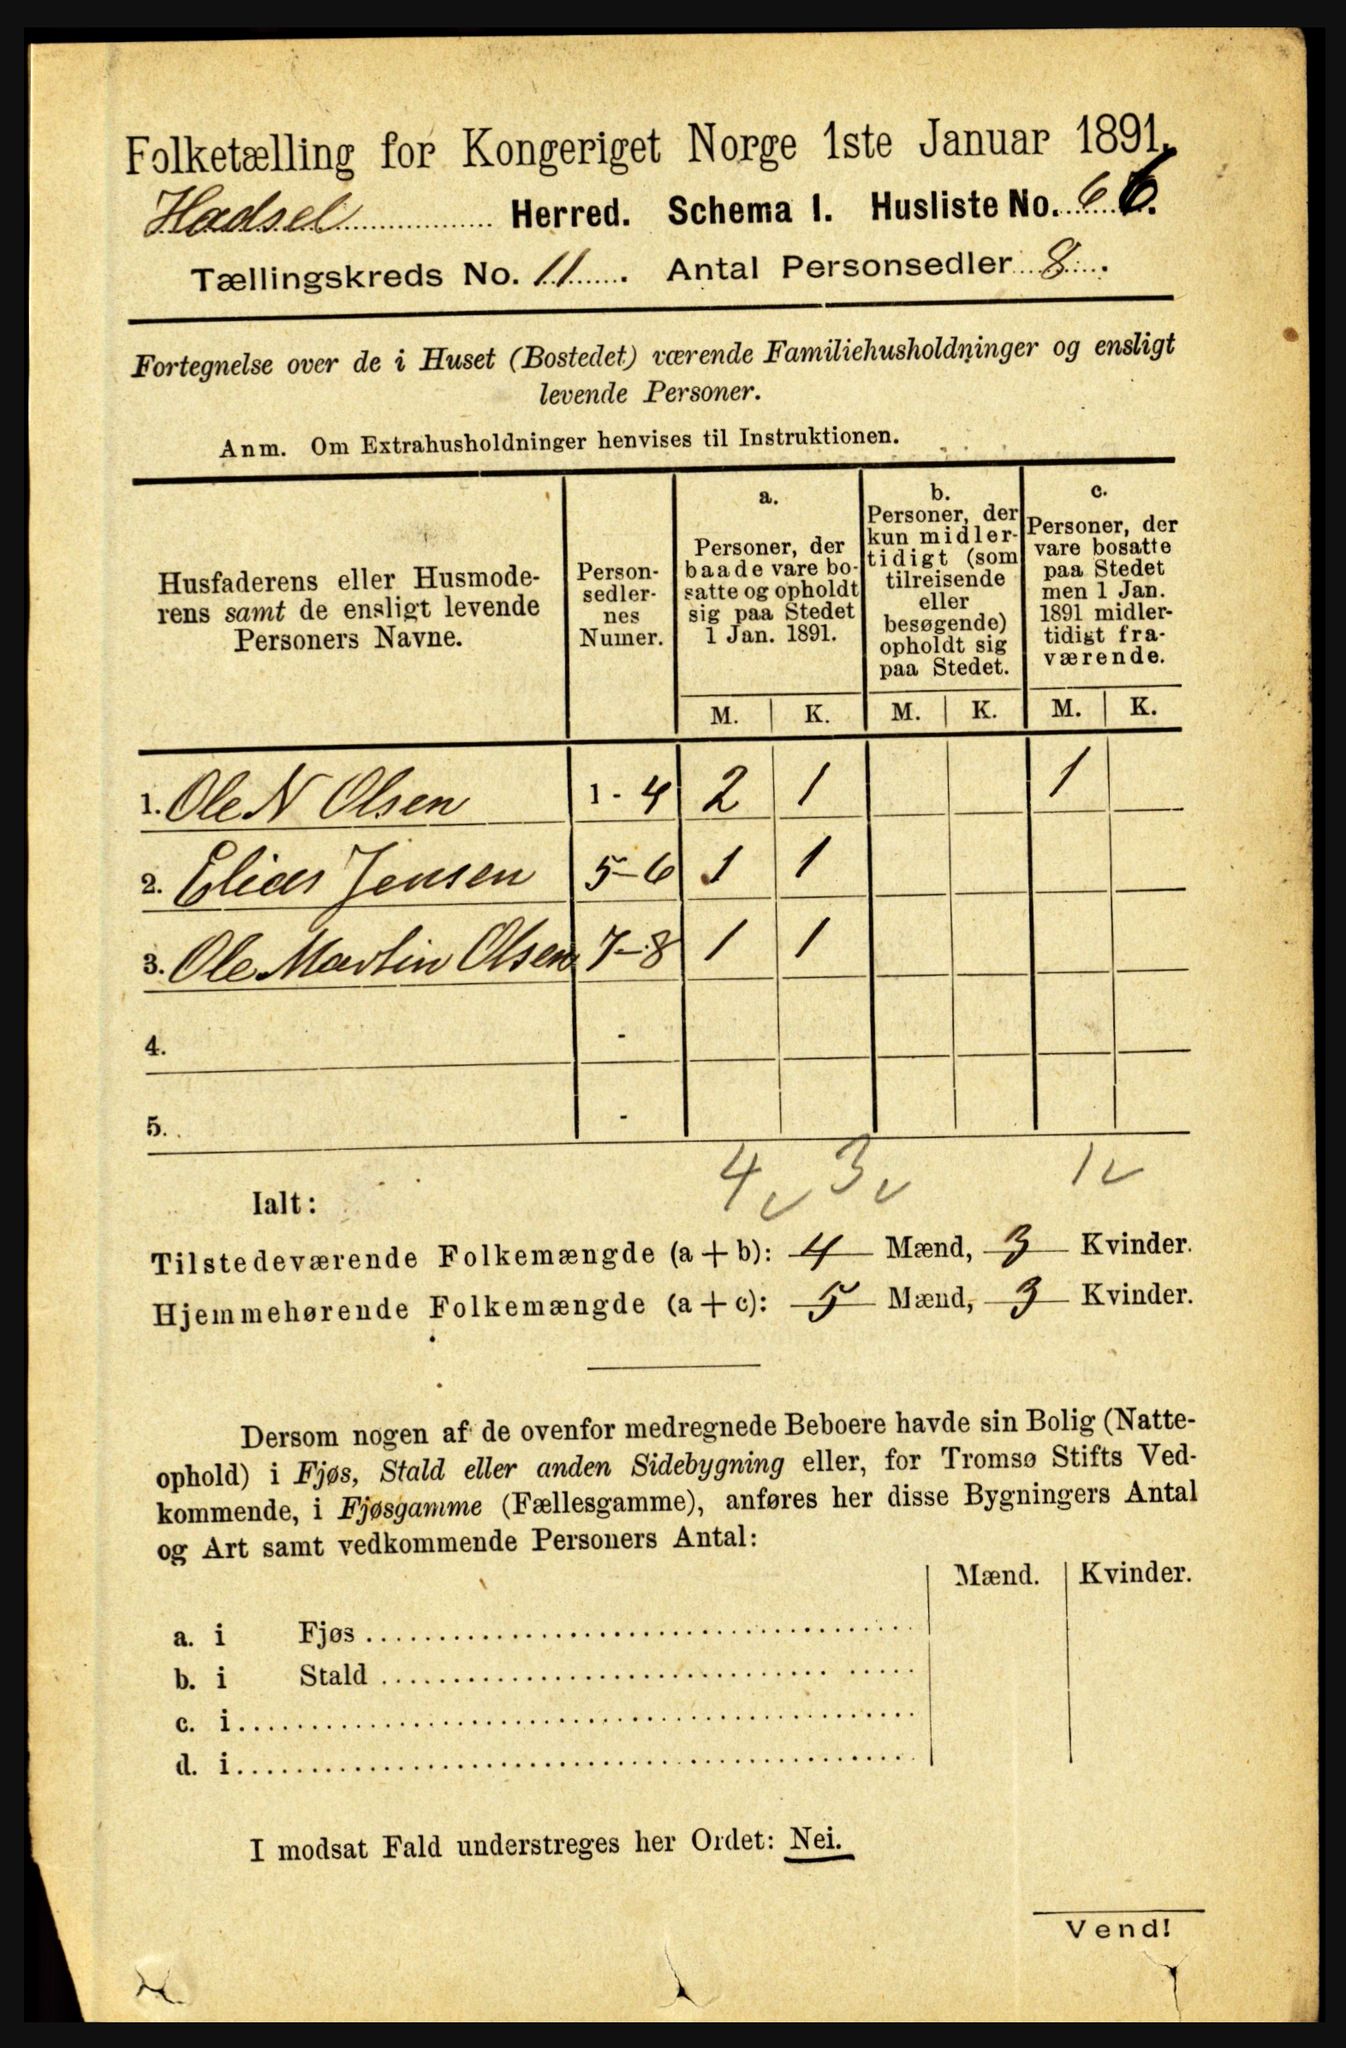 Folketælling for Kongeriget Norge 1ste Januar 1891.
Hadsel Herred. Schema 1. Husliste No. 66.
Tællingskreds No. 11. Antal Personsedler 8.
Fortegnelse over de i Huset (Bostedet) værende Familiehusholdninger og ensligt
levende Personer.
Anm. Om Extrahusholdninger henvises til Instruktionen.
Husfaderens eller Husmode-
rens samt de ensligt levende
Personers Navne.
Person-
sedler-
nes
Numer.
a.
Personer, der
baade vare bo-
satte og opholdt
sig paa Stedet
1 Jan. 1891.
b.
Personer, der
kun midler-
tidigt (som
tilreisende
eller
besøgende)
opholdt sig
paa Stedet.
c.
Personer, der
vare bosatte
paa Stedet
men 1 Jan.
1891 midler-
tidigt fra-
værende.
M. K. M. K. M. K.
1. Ole N Olsen 1 - 4 2 1 1
2. Elias Jensen 5-6 1 1
3. Ole Martin Olsen 7-8 1 1
4. -
5. -
4 v 3 v 1 v
Ialt:
Tilstedeværende Folkemængde (a + b): 4 Mænd, 3 Kvinder.
Hjemmehørende Folkemængde (a + c): 5 Mænd, 3 Kvinder.
Dersom nogen af de ovenfor medregnede Beboere havde sin Bolig (Natte-
ophold) i Fjøs, Stald eller anden Sidebygning eller, for Tromsø Stifts Ved-
kommende, i Fjøsgamme (Fællesgamme), anføres her disse Bygningers Antal
og Art samt vedkommende Personers Antal:
Mænd. Kvinder.
a. i Fjøs
b. i Stald
c. i
d. i
I modsat Fald understreges her Ordet: Nei.
Vend!